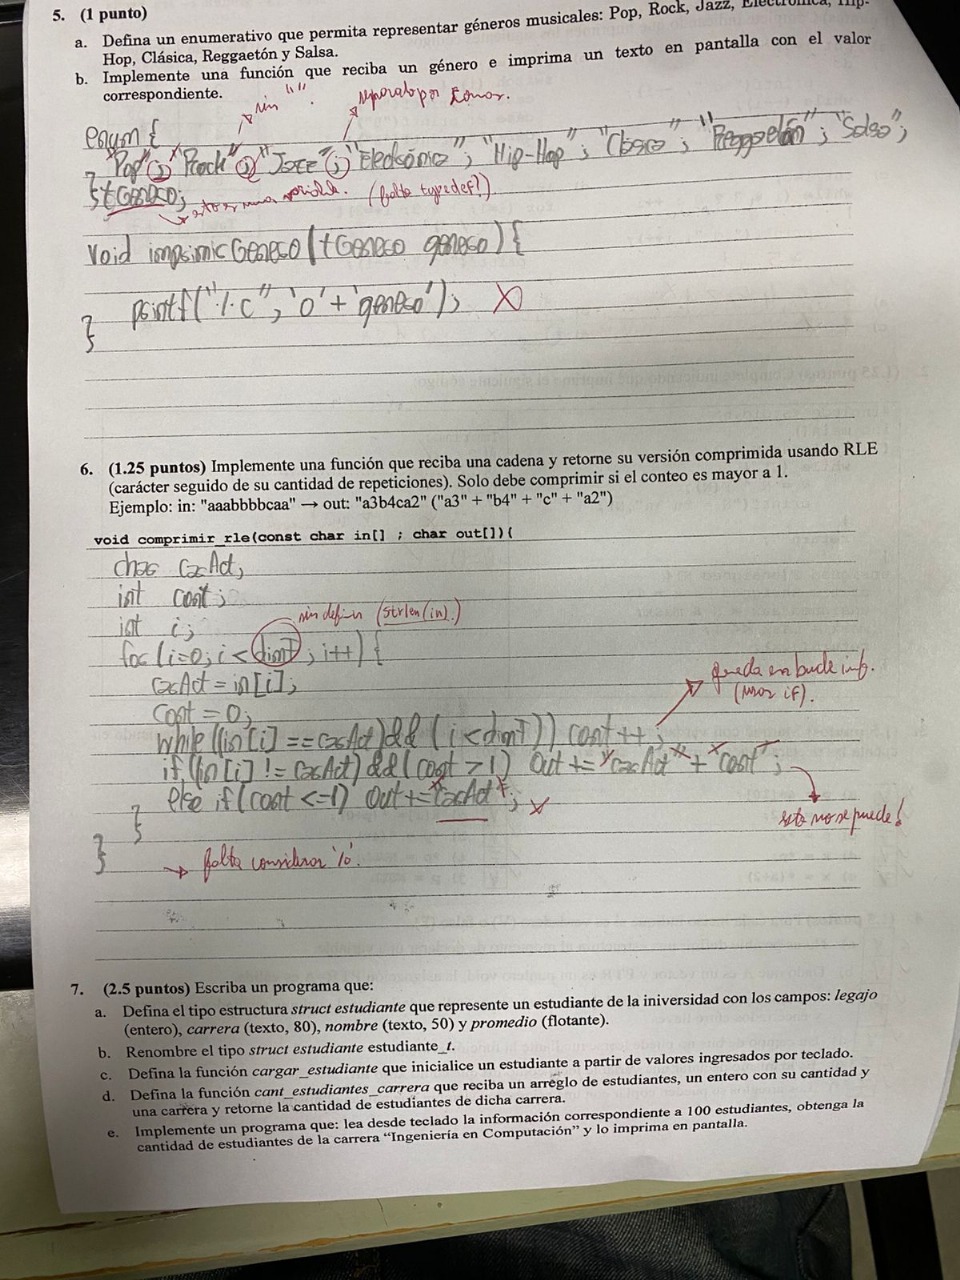 5. (1 punto)
a. Defina un enumerativo que permita representar géneros musicales: Pop, Rock, Jazz, Electrónica, Hip-
Hop, Clásica, Reggaetón y Salsa.
b. Implemente una función que reciba un género e imprima un texto en pantalla con el valor
correspondiente.
sin " ".
separado por comas.
enum {
"Pop"; "Rock"; "Jazz"; "Electrónica"; "Hip-Hop"; "Clásica"; "Reggaetón"; "Salsa";
} tGenero;
esto es una variable. (falta typedef!)
void imprimirGenero(tGenero genero){
printf("%c", '0' + 'genero'); X
}
6. (1.25 puntos) Implemente una función que reciba una cadena y retorne su versión comprimida usando RLE
(carácter seguido de su cantidad de repeticiones). Solo debe comprimir si el conteo es mayor a 1.
Ejemplo: in: "aaabbbbcaa" → out: "a3b4ca2" ("a3" + "b4" + "c" + "a2")
void comprimir_rle(const char in[] ; char out[]){
char carAct;
int cont;
int i;
sin definir (strlen(in).)
for (i=0; i<dimT; i++) {
carAct = in[i];
queda en bucle inf.
(usar if).
cont = 0;
while ((in[i] == carAct) && (i<dimT)) cont++;
if ((in[i] != carAct) && (cont > 1) out += "carAct" + "cont";
else if (cont <=1) out += "carAct"; X
esto no se puede!
}
}
→ falta considerar '\0'.
7. (2.5 puntos) Escriba un programa que:
a. Defina el tipo estructura struct estudiante que represente un estudiante de la iniversidad con los campos: legajo
(entero), carrera (texto, 80), nombre (texto, 50) y promedio (flotante).
b. Renombre el tipo struct estudiante estudiante_t.
c. Defina la función cargar_estudiante que inicialice un estudiante a partir de valores ingresados por teclado.
d. Defina la función cant_estudiantes_carrera que reciba un arreglo de estudiantes, un entero con su cantidad y
una carrera y retorne la cantidad de estudiantes de dicha carrera.
e. Implemente un programa que: lea desde teclado la información correspondiente a 100 estudiantes, obtenga la
cantidad de estudiantes de la carrera “Ingeniería en Computación” y lo imprima en pantalla.